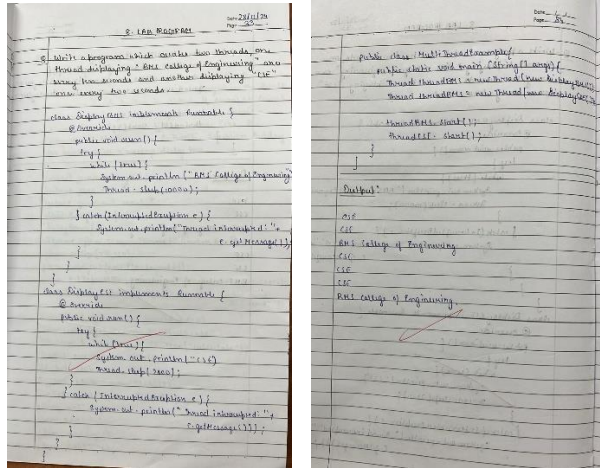 Date 28/12/24
Page 33
8. LAB PROGRAM
Q. Write a program which creates two threads, one
thread displaying "BMS College of Engineering" once
every ten seconds and another displaying "CSE"
once every two seconds.
class DisplayBMS implements Runnable {
@Override
public void run() {
try {
while (true) {
System.out.println ("BMS College of Engineering"
Thread.sleep (10000);
}
} catch (InterruptedException e) {
System.out.println ("Thread interrupted: " +
e.getMessage());
}
}
}
class DisplayCSE implements Runnable {
@Override
public void run() {
try {
while (true) {
System.out.println ("CSE")
Thread.sleep (2000);
}
} catch (InterruptedException e) {
System.out.println (" Thread interrupted: " +
e.getMessage());
}
}
}
Date
Page
public class MultiThreadExample {
public static void main (String[] args) {
Thread threadBMS = new Thread (new DisplayBMS
Thread threadBMS = new Thread (new Display
threadBMS.start();
threadCSE.start();
}
}
Output:
CSE
CSE
BMS College of Engineering
CSE
CSE
CSE
BMS College of Engineering.